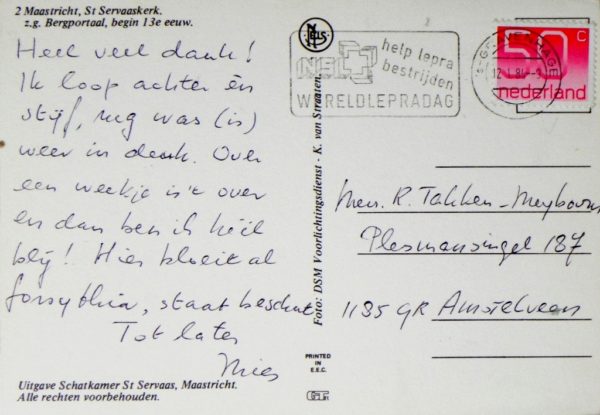 2 Maastricht, St Servaaskerk.
z.g. Bergportaal, begin 13e eeuw.
Heel veel dank!
Ik loop achter èn
stijf, rug was (is)
weer in de war. Over
een weekje is 't over
en dan ben ik héél
blij! Hier bloeit al
forsythia, staat beschut
Tot later
Uitgave Schatkamer St Servaas, Maastricht.
Alle rechten voorbehouden.
NELS
Foto: DSM Voorlichtingsdienst - K. van Straaten.
PRINTED
IN
E.E.C.
help lepra
bestrijden
NSL
WERELDLEPRADAG
'S-GRAVENHAGE
50 C
nederland
Mevr. R. Takken-Meyboom
Plesmansingel 187
1185 GR Amstelveen